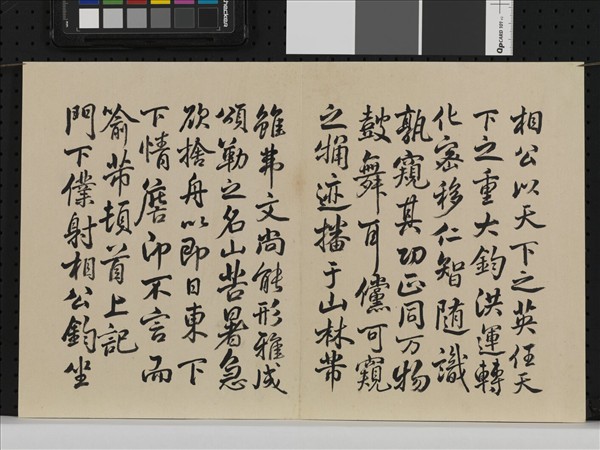 相公以天下之英任天
下之重大鈞洪運轉
化密移仁智随識
孰窺其功正同万物
鼓舞耳儻可窺
之迹播于山林芾
雖弗文尚能形雅成
頌勒之名山苦暑急
欲捨舟以即日東下
下情卬不言而
喻芾頓首上記
門下僕射相公鈞坐
QPCARD 101